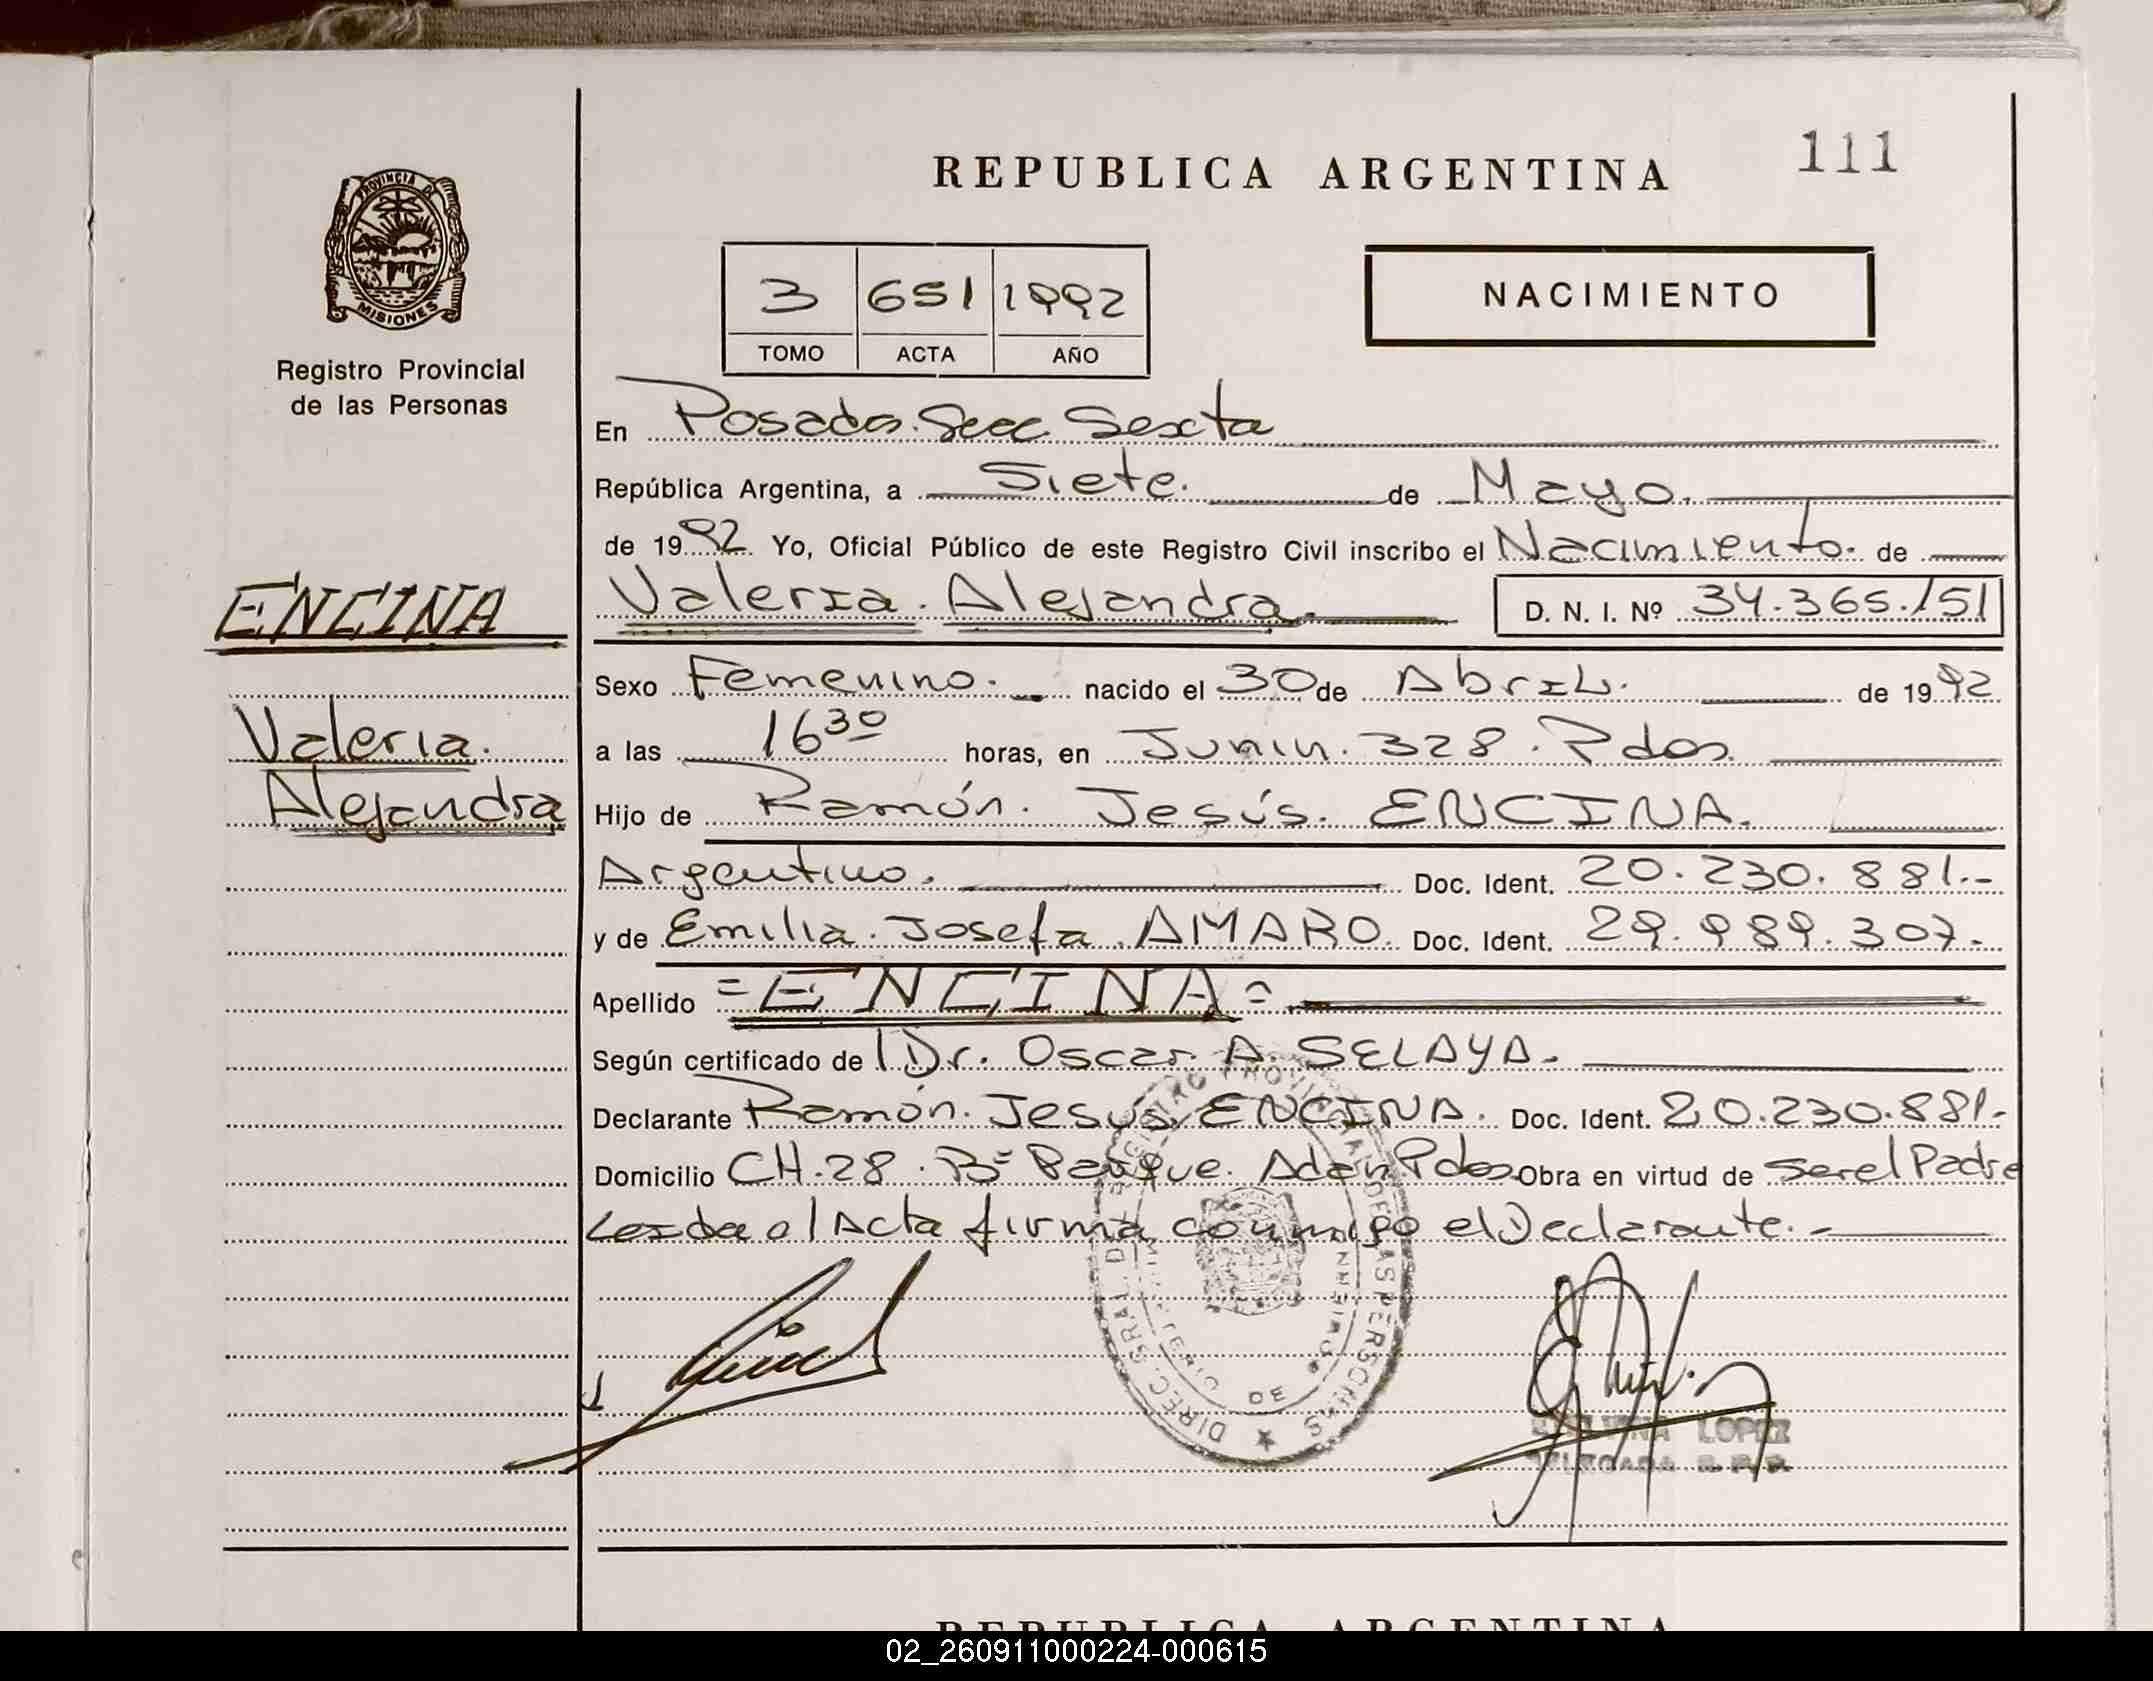 111
REPUBLICA ARGENTINA
PROVINCIA DE
MISIONES
Registro Provincial
de las Personas
3 651 1992
TOMO ACTA AÑO
NACIMIENTO
En Posadas. Secc Sexta
República Argentina, a Siete. de Mayo.
de 1992. Yo, Oficial Público de este Registro Civil inscribo el Nacimiento. de
ENCINA
Valeria. Alejandra. D. N. I. Nº 34.365.151
Sexo Femenino. nacido el 30 de Abril. de 1992
Valeria.
a las 16 30 horas, en Junin. 328. Pdas.
Alejandra
Hijo de Ramón. Jesús. ENCINA.
Argentino. Doc. Ident. 20.230.881.-
y de Emilia. Josefa. AMARO. Doc. Ident. 29.989.307.-
Apellido =ENCINA=
Según certificado de Dr. Oscar. A. SELAYA.
Declarante Ramón. Jesús. ENCINA. Doc. Ident. 20.230.881.-
Domicilio CH.28. Bº Parque. Adam Pdas. Obra en virtud de Ser el Padre
Leida el Acta firma conmigo el Declarante.-
DIREC. GRAL. DEL REGISTRO PROVINCIAL DE LAS PERSONAS
LOPEZ
DELEGADA R. P. P.
REPUBLICA ARGENTINA
02_260911000224-000615